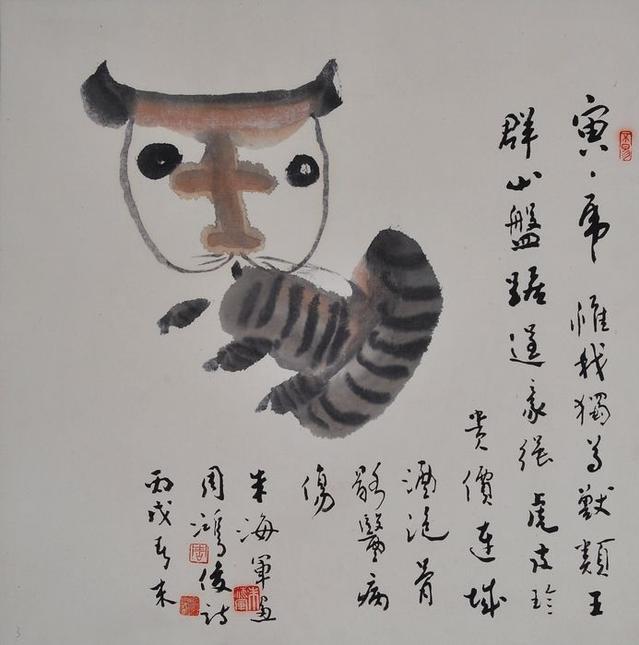 寅、虎 惟我獨尊獸類王
群山盤踞逞豪強虎皮珍
贵價連城
酒泡骨
骸醫病
傷
朱海軍画
周鴻俊詩
丙戌春末
3